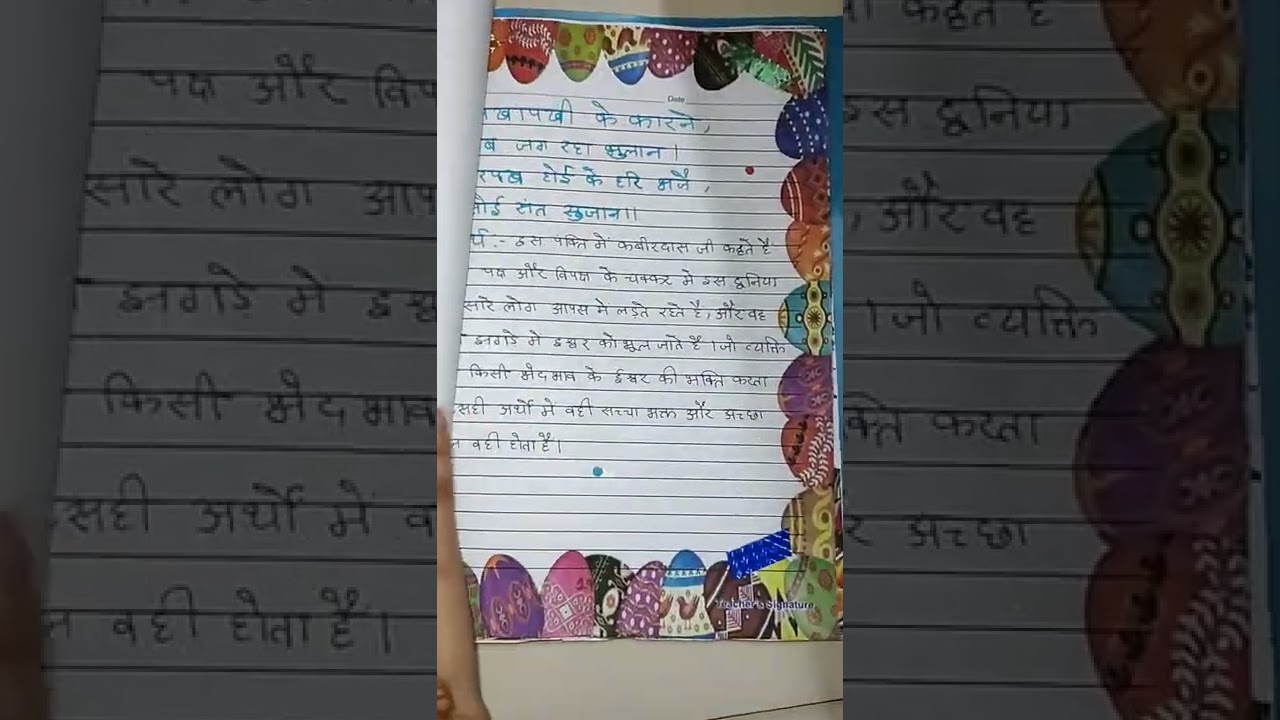 Date
के कारने,
जग रहा भुलान।
होई के हरि भजै,
संत सुजान॥
:- इस पंक्ति में कबीरदास जी कहते है
पक्ष और विपक्ष के चक्कर मे इस दुनिया
सारे लोग आपस मे लड़ते रहते है, और वह
झगडे मे ईश्वर को भुल जाते है । जो व्यक्ति
किसी भेदभाव के ईश्वर की भक्ति करता
सही अर्थो मे वही सच्चा भक्त और अच्छा
वही होता है।
Teacher's Signature